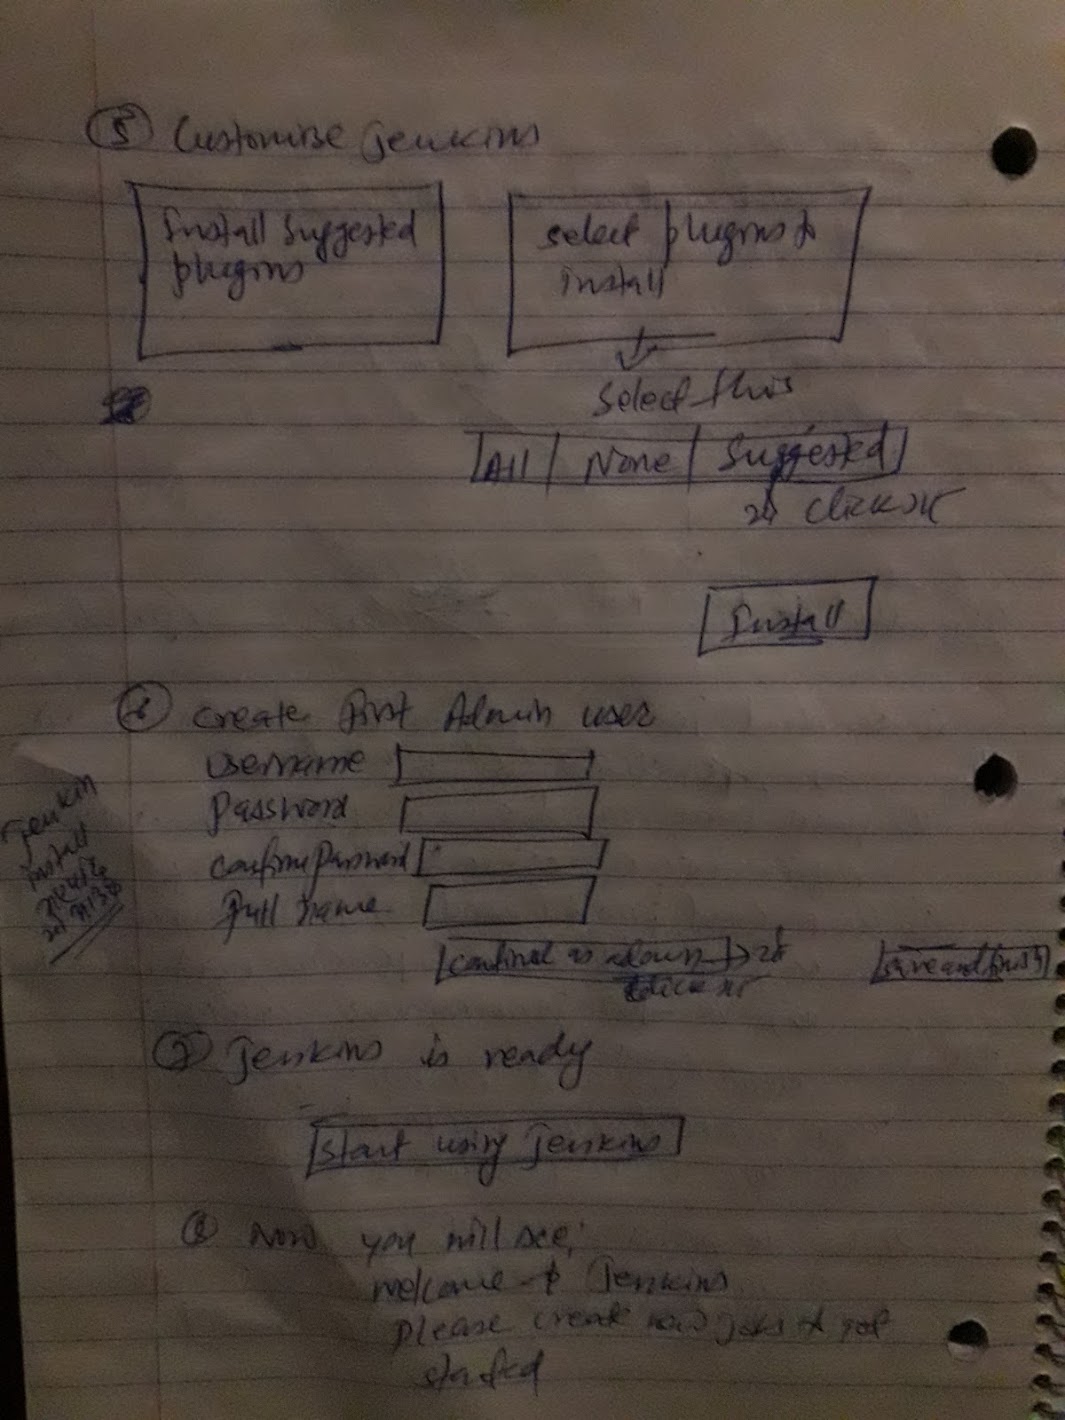 5 Customise Jenkins
Install Suggested
plugins
select plugins to
install
Select this
All None Suggested
click
Install
6 Create First Admin user
username
Password
Confirm Password
Full name
as admin
click
save and finish
Jenkin
install
7 Jenkins is ready
start using Jenkins
8 Now you will see;
welcome to Jenkins
please create new jobs to get
started